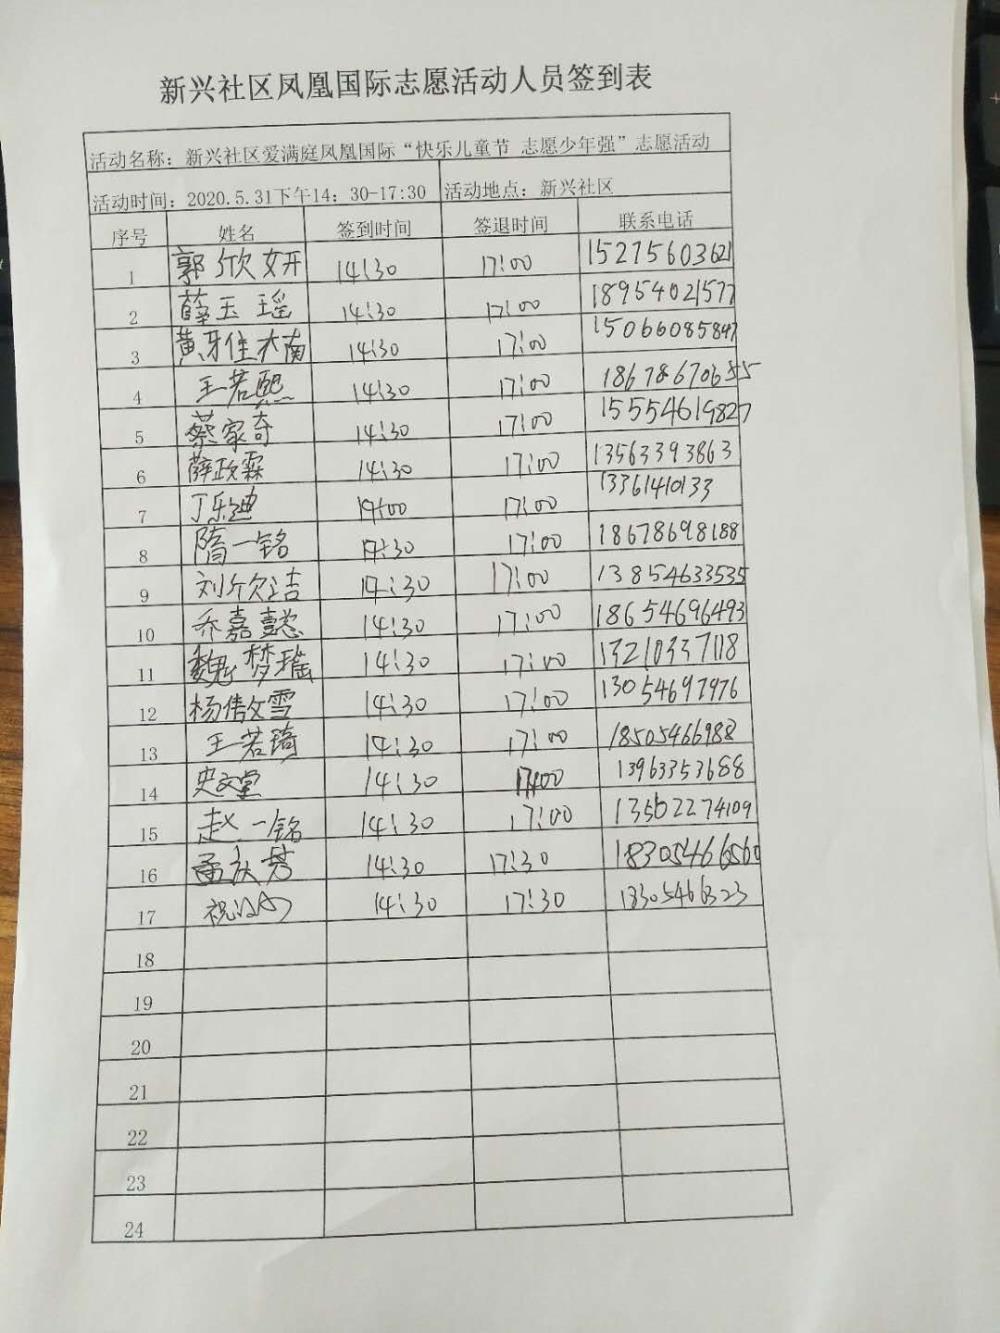 新兴社区凤凰国际志愿活动人员签到表
活动名称：新兴社区爱满庭凤凰国际“快乐儿童节 志愿少年强”志愿活动
活动时间：2020.5.31下午14：30-17:30 活动地点：新兴社区
序号 姓名 签到时间 签退时间 联系电话
1 郭欣妍 14:30 17:00 15275603621
2 薛玉瑶 14:30 17:00 18954021577
3 黄牙佳楠 14:30 17:00 15066085847
4 王若熙 14:30 17:00 18678670655
5 蔡家奇 14:30 17:00 15554619827
6 薛政霖 14:30 17:00 13563393863
7 丁乐迪 17:00 13361410133
8 隋一铭 17:00 18678698188
9 刘欣洁 14:30 17:00 13854633535
10 乔嘉懿 14:30 17:00 18654696493
11 魏梦瑶 14:30 17:00 13210337118
12 杨倩文雪 14:30 17:00 13054697976
13 王若琦 14:30 17:00 18505466988
14 史文堂 14:30 17:00 13963353688
15 赵一铭 14:30 17:00 13562274109
16 孟庆芳 14:30 17:30 18305466560
17 14:30 17:30 18305466323
18
19
20
21
22
23
24